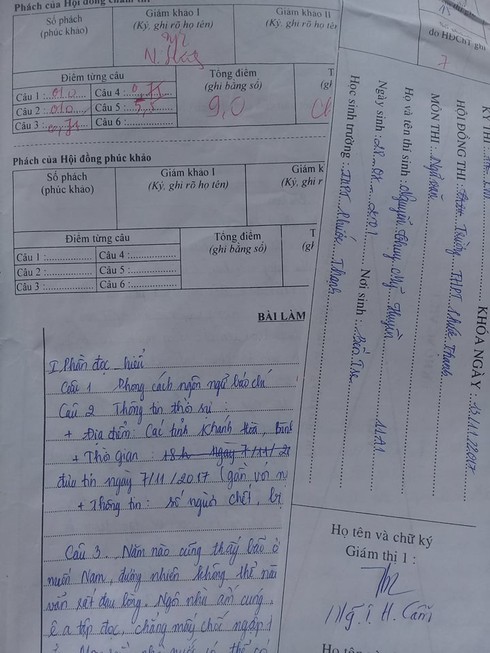 Phách của Hội đồng chấm thi
Số phách
(phúc khảo)
Giám khảo I
(Ký, ghi rõ họ tên)
Giám khảo II
(Ký, ghi rõ họ tên
Điểm từng câu
Tổng điểm
(ghi bằng số)
T
(g
Câu 1 : 0,0 Câu 4 : 0,75
Câu 2 : 0,0 Câu 5 : 5,5
Câu 3 : 0,75 Câu 6 :
9,0
Phách của Hội đồng phúc khảo
Số phách
(phúc khảo)
Giám khảo I
(Ký, ghi rõ họ tên)
Giám k
(Ký, ghi r
Điểm từng câu
Tổng điểm
(ghi bằng số)
T
(gh
Câu 1 : Câu 4 :
Câu 2 : Câu 5 :
Câu 3 : Câu 6 :
BÀI LÀM
I. Phần đọc hiểu
Câu 1 Phong cách ngôn ngữ báo chí
Câu 2 Thông tin thời sự :
+ Địa điểm: Các tỉnh Khánh Hòa, Bình
+ Thời gian : 18h ngày 7/11/20
đưa tin ngày 7/11/2017 (gần với n
+ Thông tin : số người chết, bị
Câu 3. Năm nào cũng thấy bão ở
miền Nam, đương nhiên không thể nói
vẫn rất đau lòng. Ngôi nhà ấm cúng,
ê a tập đọc, chẳng mấy chốc ngập t
do HĐChT ghi
7
KỲ THI :
HỘI ĐỒNG THI : Trường THPT Phước Thạnh
KHÓA NGÀY : 15/11/2017
MÔN THI : Ngữ văn
Họ và tên thí sinh : Nguyễn Thụy Mỹ Huyền 11A1
Ngày sinh : 28 2001 Nơi sinh : Bến Tre
Học sinh trường : THPT Phước Thạnh
Họ tên và chữ ký
Giám thị 1 :
H. Cẩm
Họ tên